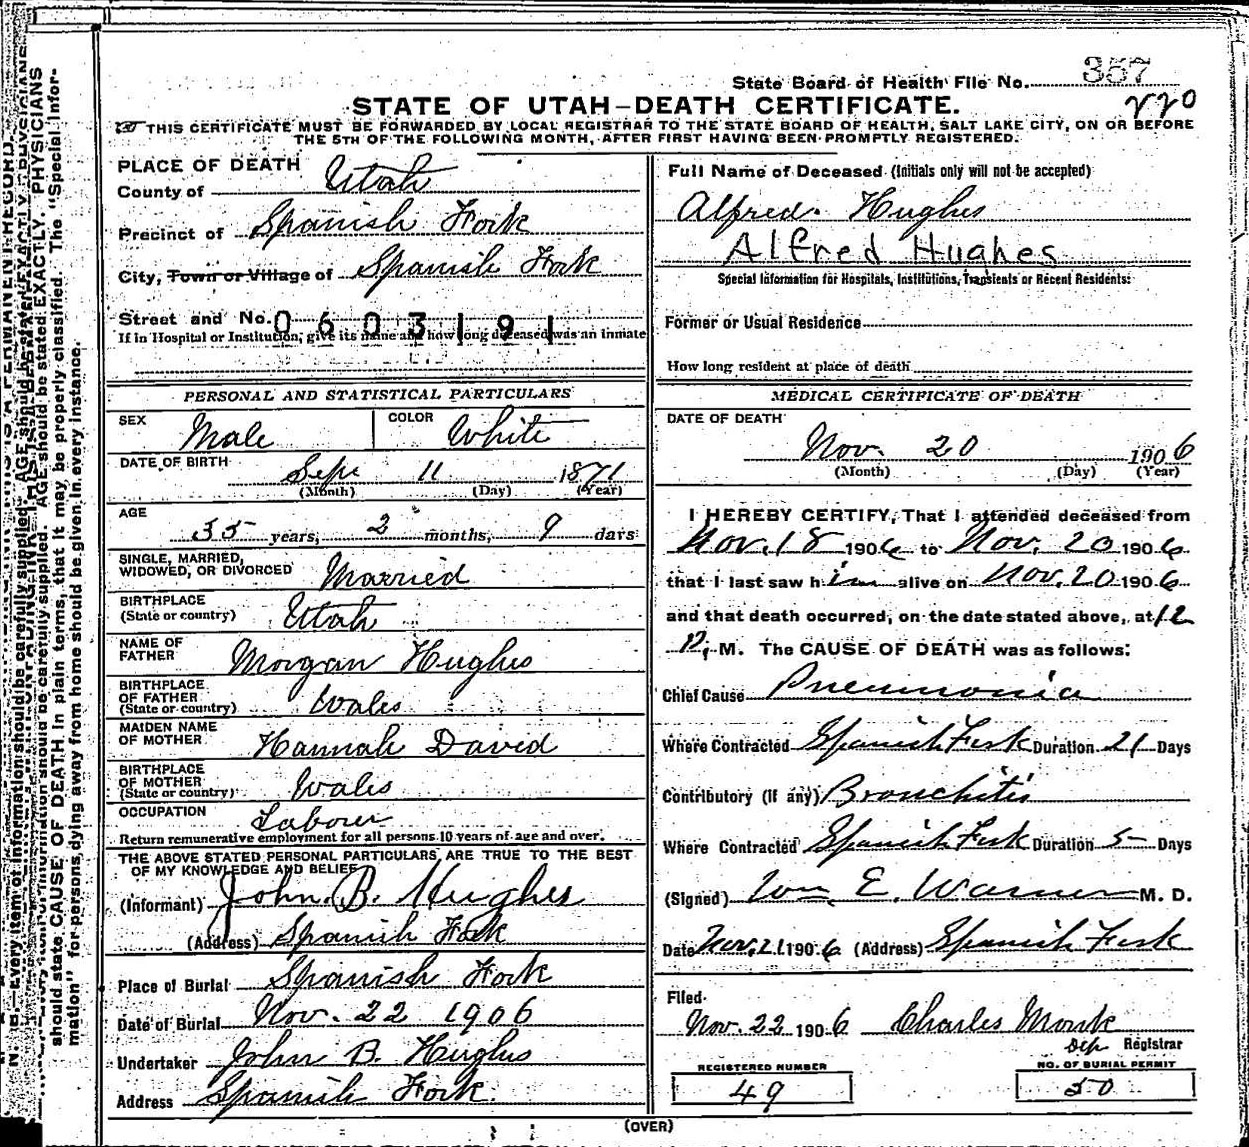 State Board of Health File No. 357
220
STATE OF UTAH–DEATH CERTIFICATE.
THIS CERTIFICATE MUST BE FORWARDED BY LOCAL REGISTRAR TO THE STATE BOARD OF HEALTH, SALT LAKE CITY, ON OR BEFORE
THE 5TH OF THE FOLLOWING MONTH, AFTER FIRST HAVING BEEN PROMPTLY REGISTERED.
PLACE OF DEATH
County of Utah
Precinct of Spanish Fork
City, Town or Village of Spanish Fork
Street and No. 0603191
If in Hospital or Institution, give its name and how long deceased was an inmate
PERSONAL AND STATISTICAL PARTICULARS
SEX Male COLOR White
DATE OF BIRTH Sep. 11 1871
(Month) (Day) (Year)
AGE
35 years, 2 months, 9 days
SINGLE, MARRIED,
WIDOWED, OR DIVORCED Married
BIRTHPLACE
(State or country) Utah
NAME OF
FATHER Morgan Hughes
BIRTHPLACE
OF FATHER
(State or country) Wales
MAIDEN NAME
OF MOTHER Hannah David
BIRTHPLACE
OF MOTHER
(State or country) Wales
OCCUPATION Labourer
Return remunerative employment for all persons 10 years of age and over.
THE ABOVE STATED PERSONAL PARTICULARS ARE TRUE TO THE BEST
OF MY KNOWLEDGE AND BELIEF
(Informant) John B. Hughes
(Address) Spanish Fork
Place of Burial Spanish Fork
Date of Burial Nov. 22 1906
Undertaker John B. Hughes
Address Spanish Fork.
Full Name of Deceased (Initials only will not be accepted)
Alfred Hughes
Alfred Hughes
Special Information for Hospitals, Institutions, Transients or Recent Residents:
Former or Usual Residence
How long resident at place of death
MEDICAL CERTIFICATE OF DEATH
DATE OF DEATH
Nov. 20 1906
(Month) (Day) (Year)
I HEREBY CERTIFY, That I attended deceased from
Nov. 18 1906 to Nov. 20 1906
that I last saw him alive on Nov. 20 1906
and that death occurred, on the date stated above, at 12
P. M. The CAUSE OF DEATH was as follows:
Chief Cause Pneumonia
Where Contracted Spanish Fork Duration 21 Days
Contributory (if any) Bronchitis
Where Contracted Spanish Fork Duration 5 Days
(Signed) Wm E. Warner M. D.
Date Nov. 21 1906 (Address) Spanish Fork
Filed
Nov. 22 1906 Charles Monk
Dep Registrar
REGISTERED NUMBER
49
NO. OF BURIAL PERMIT
50
(OVER)
N. B.—Every item of information should be carefully supplied. AGE should be stated EXACTLY. PHYSICIANS
should state CAUSE OF DEATH in plain terms, that it may be properly classified. The "Special Infor-
mation" for persons dying away from home should be given in every instance.